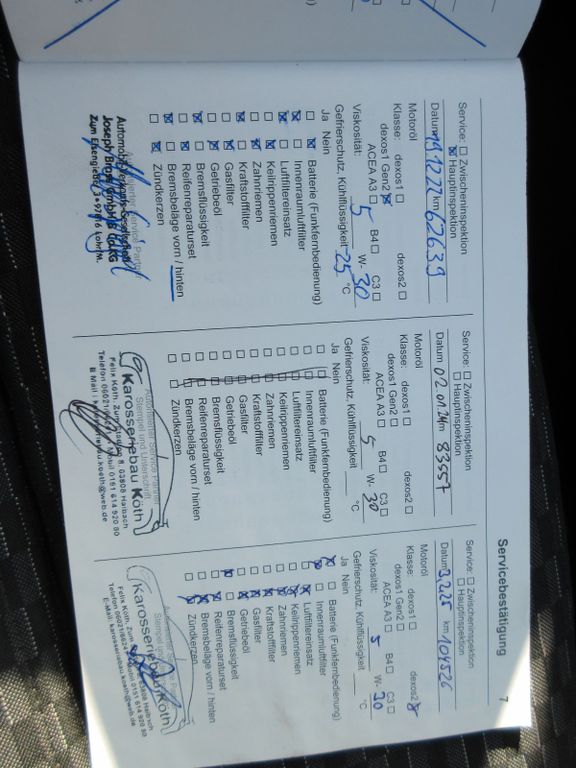 Servicebestätigung
7
Service: ☐ Zwischeninspektion
☒ Hauptinspektion
Datum 19.12.22 km 62639
Motoröl
Klasse: dexos1 ☐ dexos2 ☐
dexos1 Gen2 ☒
ACEA A3 ☐ B4 ☐ C3 ☐
Viskosität: 5 W- 30
Gefrierschutz, Kühlflüssigkeit -25 °C
Ja Nein
Batterie (Funkfernbedienung)
Innenraumluftfilter
Luftfiltereinsatz
Keilrippenriemen
Zahnriemen
Kraftstofffilter
Gasfilter
Getriebeöl
Bremsflüssigkeit
Reifenreparaturset
Bremsbeläge vorn / hinten
Zündkerzen
Service Partner
Service: ☐ Zwischeninspektion
☐ Hauptinspektion
Datum 02.01.24 km 83557
Motoröl
Klasse: dexos1 ☐ dexos2 ☐
dexos1 Gen2 ☐
ACEA A3 ☐ B4 ☐ C3 ☐
Viskosität: 5 W- 30
Gefrierschutz, Kühlflüssigkeit °C
Ja Nein
Batterie (Funkfernbedienung)
Innenraumluftfilter
Luftfiltereinsatz
Keilrippenriemen
Zahnriemen
Kraftstofffilter
Gasfilter
Getriebeöl
Bremsflüssigkeit
Reifenreparaturset
Bremsbeläge vorn / hinten
Zündkerzen
Autorisierter Service Partner
Stempel und Unterschrift
Karosseriebau Köth
Service: ☐ Zwischeninspektion
☐ Hauptinspektion
Datum 3.2.25 km 104526
Motoröl
Klasse: dexos1 ☐ dexos2 ☒
dexos1 Gen2 ☐
ACEA A3 ☐ B4 ☐ C3 ☐
Viskosität: 5 W- 30
Gefrierschutz, Kühlflüssigkeit °C
Ja Nein
Batterie (Funkfernbedienung)
Innenraumluftfilter
Luftfiltereinsatz
Keilrippenriemen
Zahnriemen
Kraftstofffilter
Gasfilter
Getriebeöl
Bremsflüssigkeit
Reifenreparaturset
Bremsbeläge vorn / hinten
Zündkerzen
Karosseriebau Köth